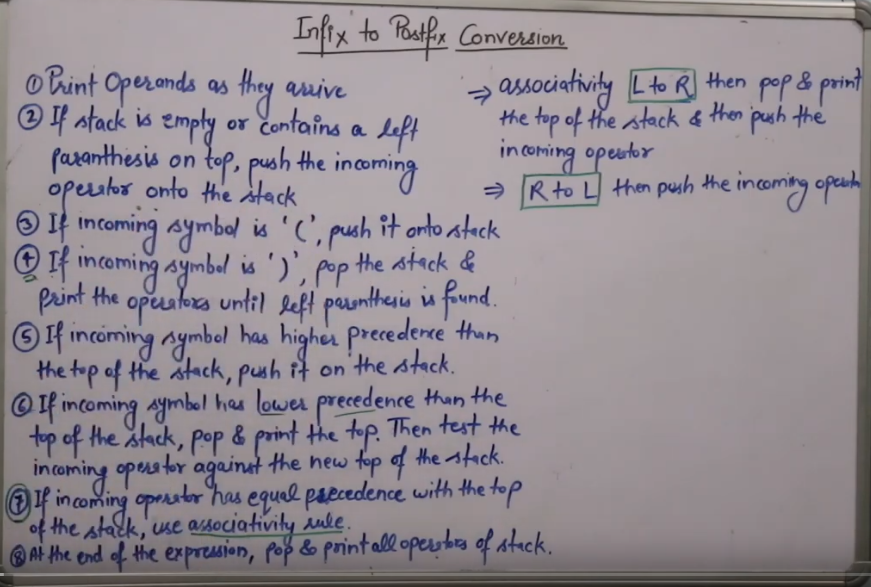 Infix to Postfix Conversion
① Print Operands as they arrive
② If stack is empty or contains a left
paranthesis on top, push the incoming
operator onto the stack
③ If incoming symbol is '(', push it onto stack
④ If incoming symbol is ')', pop the stack &
print the operators until left parenthesis is found.
⑤ If incoming symbol has higher precedence than
the top of the stack, push it on the stack.
⑥ If incoming symbol has lower precedence than the
top of the stack, pop & print the top. Then test the
incoming operator against the new top of the stack.
⑦ If incoming operator has equal precedence with the top
of the stack, use associativity rule.
⑧ At the end of the expression, pop & print all operators of stack.
⇒ associativity L to R then pop & print
the top of the stack & then push the
incoming opeutor
⇒ R to L then push the incoming